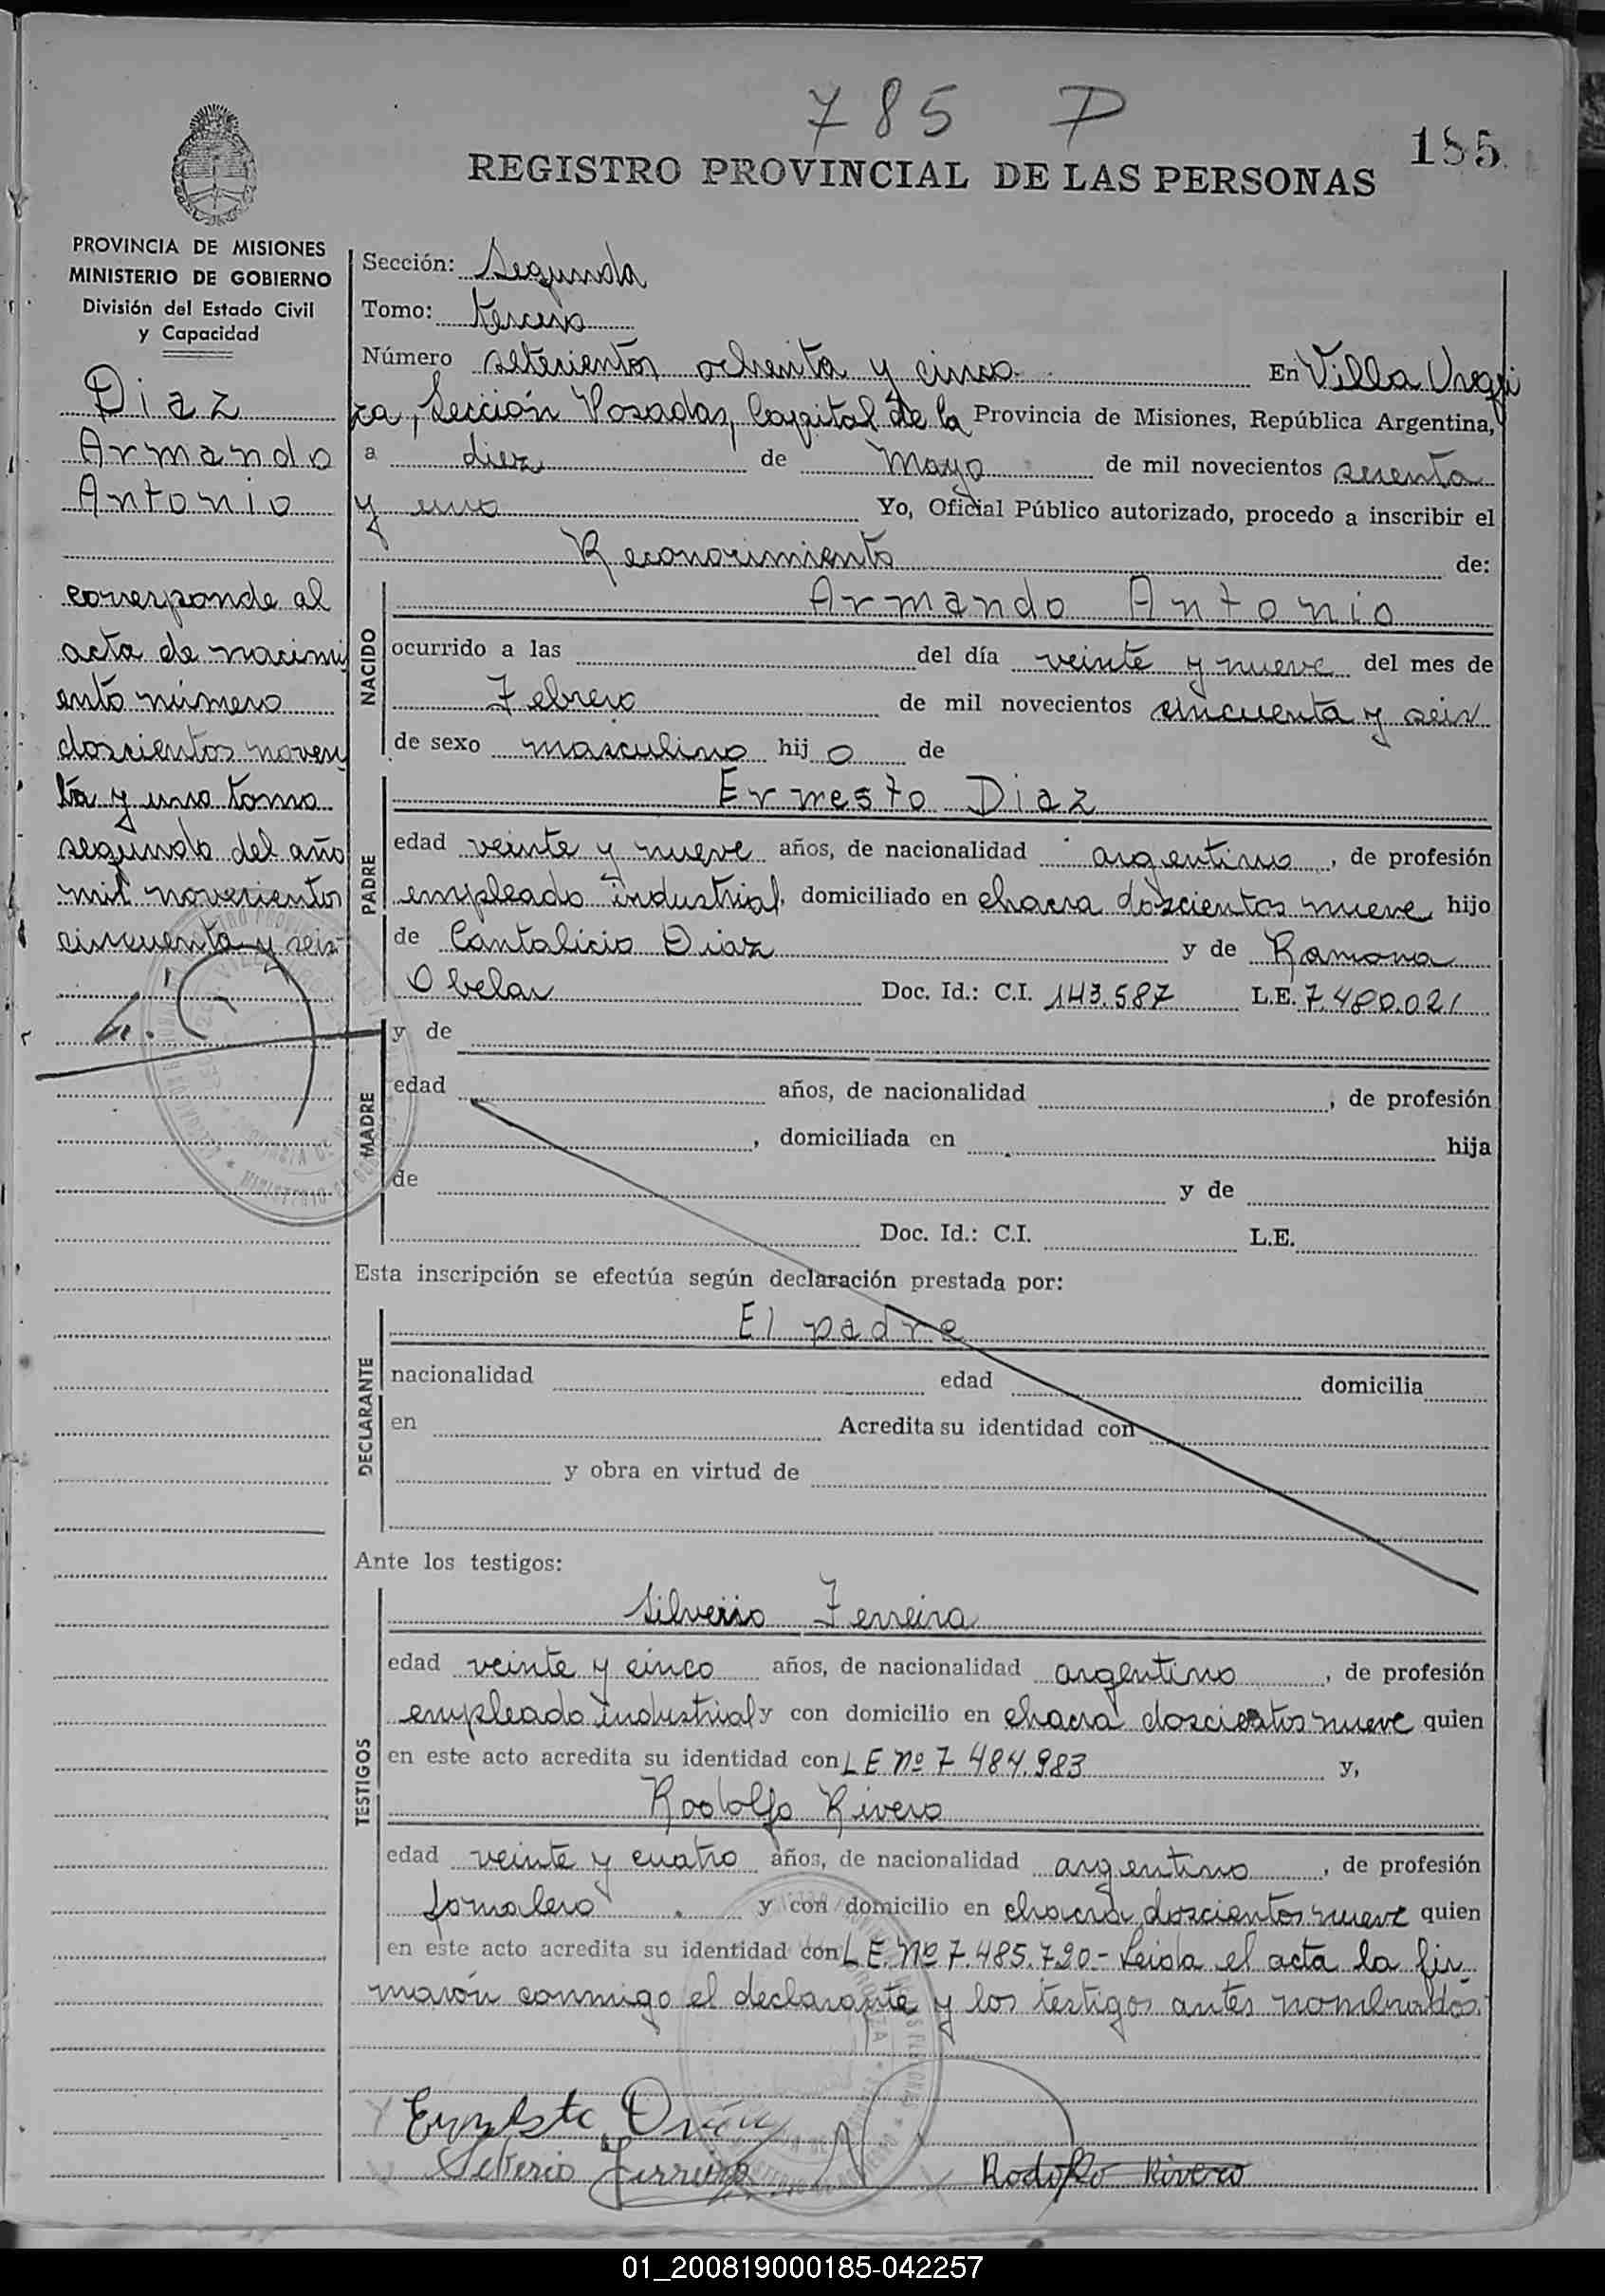 785 D
185
REGISTRO PROVINCIAL DE LAS PERSONAS
PROVINCIA DE MISIONES
MINISTERIO DE GOBIERNO
División del Estado Civil
y Capacidad
Diaz
Armando
Antonio
corresponde al
acta de nacimi
ento número
doscientos noven
ta y uno tomo
segundo del año
mil novecientos
cincuenta y seis
Sección: Segunda
Tomo: tercero
Número setecientos ochenta y cinco En Villa Urqui
za, Sección Posadas, Capital de la Provincia de Misiones, República Argentina,
a diez de Mayo de mil novecientos sesenta
y uno Yo, Oficial Público autorizado, procedo a inscribir el
Reconocimiento de:
NACIDO
Armando Antonio
ocurrido a las del día veinte y nueve del mes de
Febrero de mil novecientos cincuenta y seis
de sexo masculino hijo de
PADRE
Ernesto Diaz
edad veinte y nueve años, de nacionalidad argentino, de profesión
empleado industrial, domiciliado en chacra doscientos nueve hijo
de Cantalicio Diaz y de Ramona
Obelar Doc. Id.: C.I. 143.587 L.E. 7.480.021
MADRE
y de
edad años, de nacionalidad , de profesión
, domiciliada en hija
de y de
Doc. Id.: C.I. L.E.
Esta inscripción se efectúa según declaración prestada por:
DECLARANTE
El padre
nacionalidad edad domicilia
en Acredita su identidad con
y obra en virtud de
Ante los testigos:
TESTIGOS
Silverio Ferreira
edad veinte y cinco años, de nacionalidad argentino, de profesión
empleado industrial y con domicilio en chacra doscientos nueve quien
en este acto acredita su identidad con L E Nº 7 484.983 y,
Rodolfo Rivero
edad veinte y cuatro años, de nacionalidad argentino, de profesión
Jornalero y con domicilio en chacra doscientos nueve quien
en este acto acredita su identidad con L E. Nº 7.485.720- Leida el acta la fir-
maron conmigo el declarante y los testigos antes nombrados.
Ernesto Diaz
Silverio Ferreira Rodolfo Rivero
01_200819000185-042257